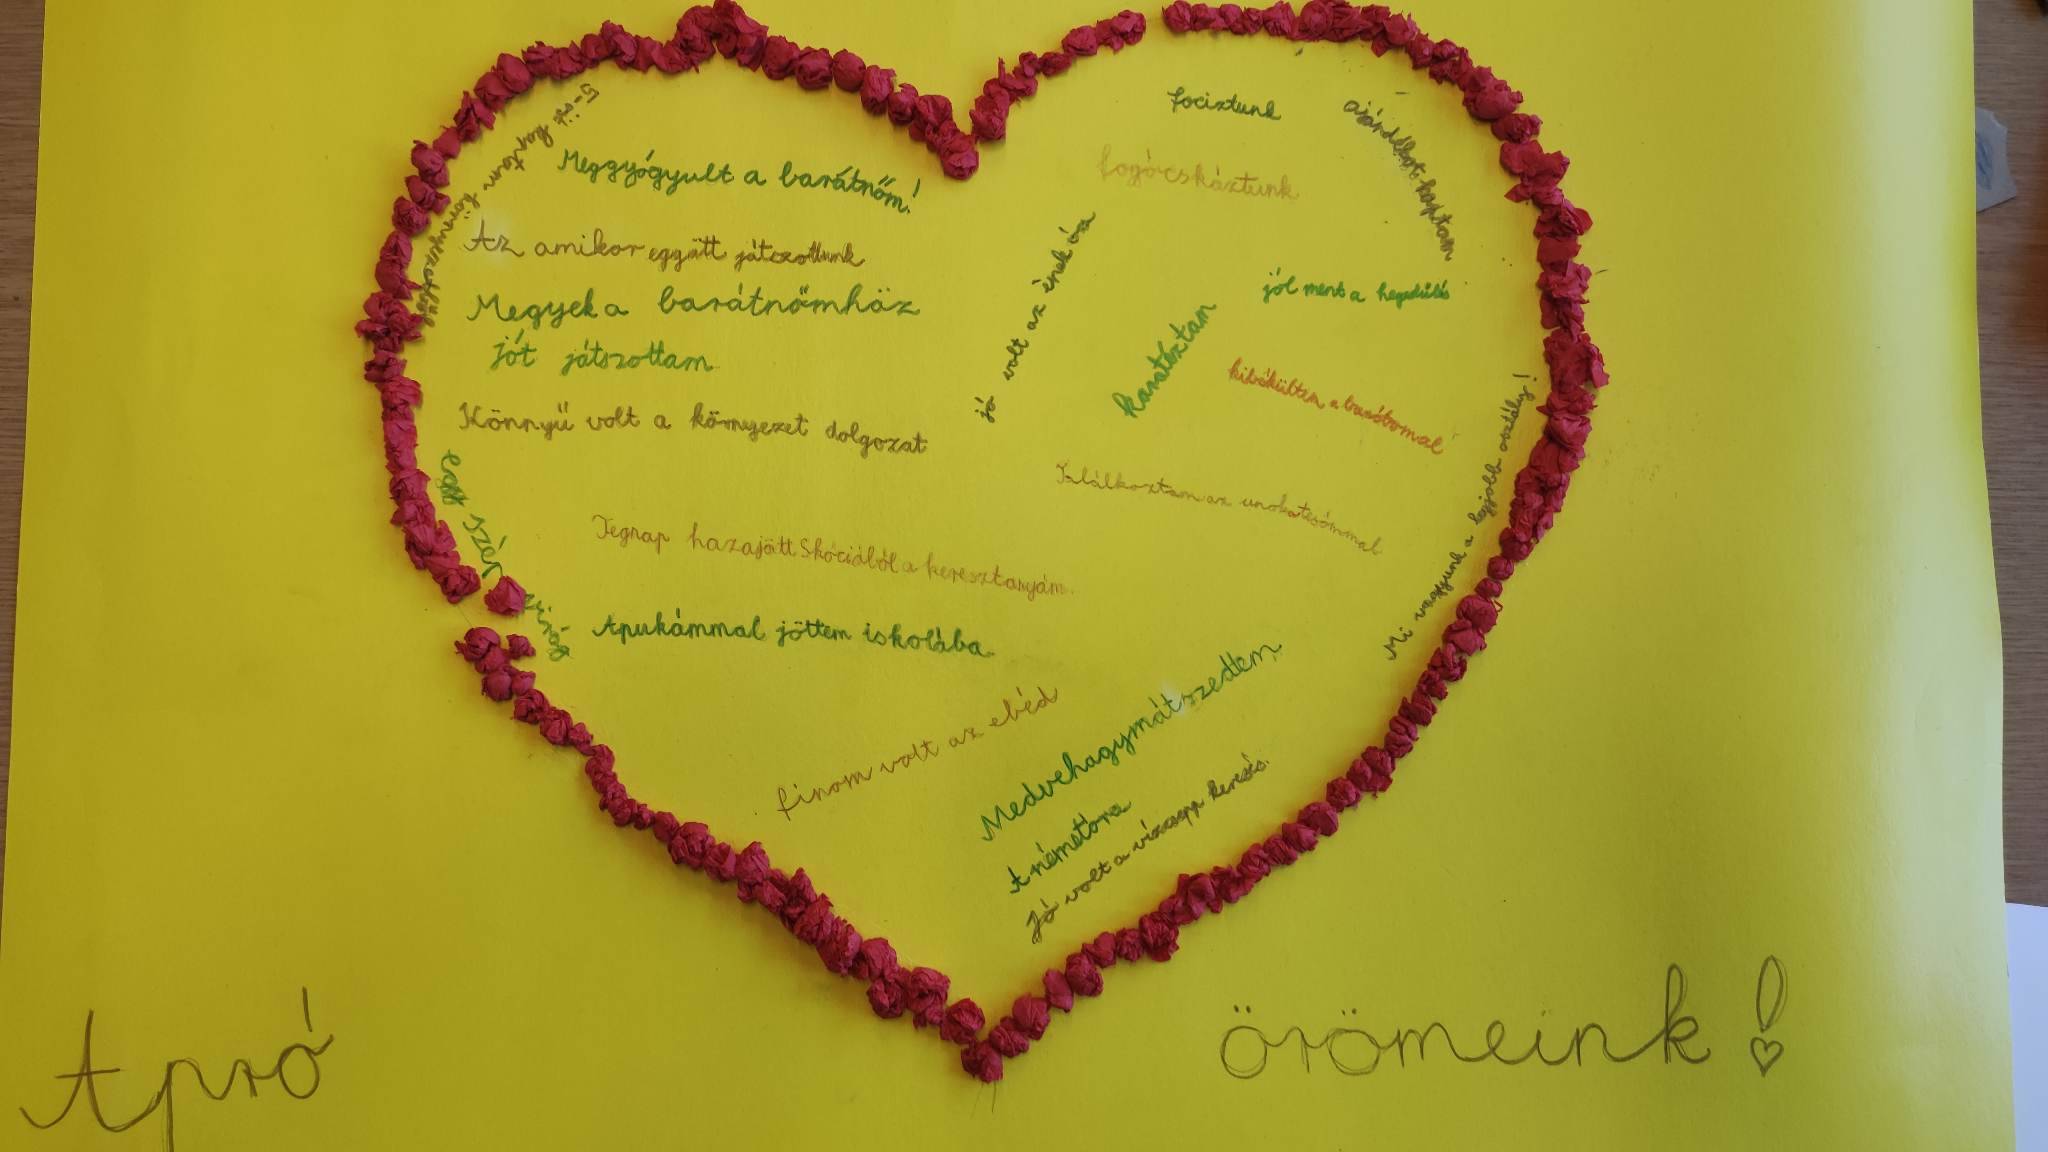 5-öst kaptam környezetből
Meggyógyult a barátnőm!
Az amikor együtt játszottunk
Megyek a barátnőmház
jót játszottam
Könnyű volt a környezet dolgozat
egy szép virág
Tegnap hazajött Skóciából a keresztanyám.
Apukámmal jöttem iskolába.
finom volt az ebéd
fociztunk
fogócskáztunk
ajándékot kaptam
jó volt az ének óra
jól ment a hegedülés
karatéztam
kibékültem a barátommal
Találkoztam az unokatesómmal
Mi vagyunk a legjobb osztály!
Medvehagymát szedtem
A németóra
Jó volt a vízcsepp keresés.
Apró örömeink!